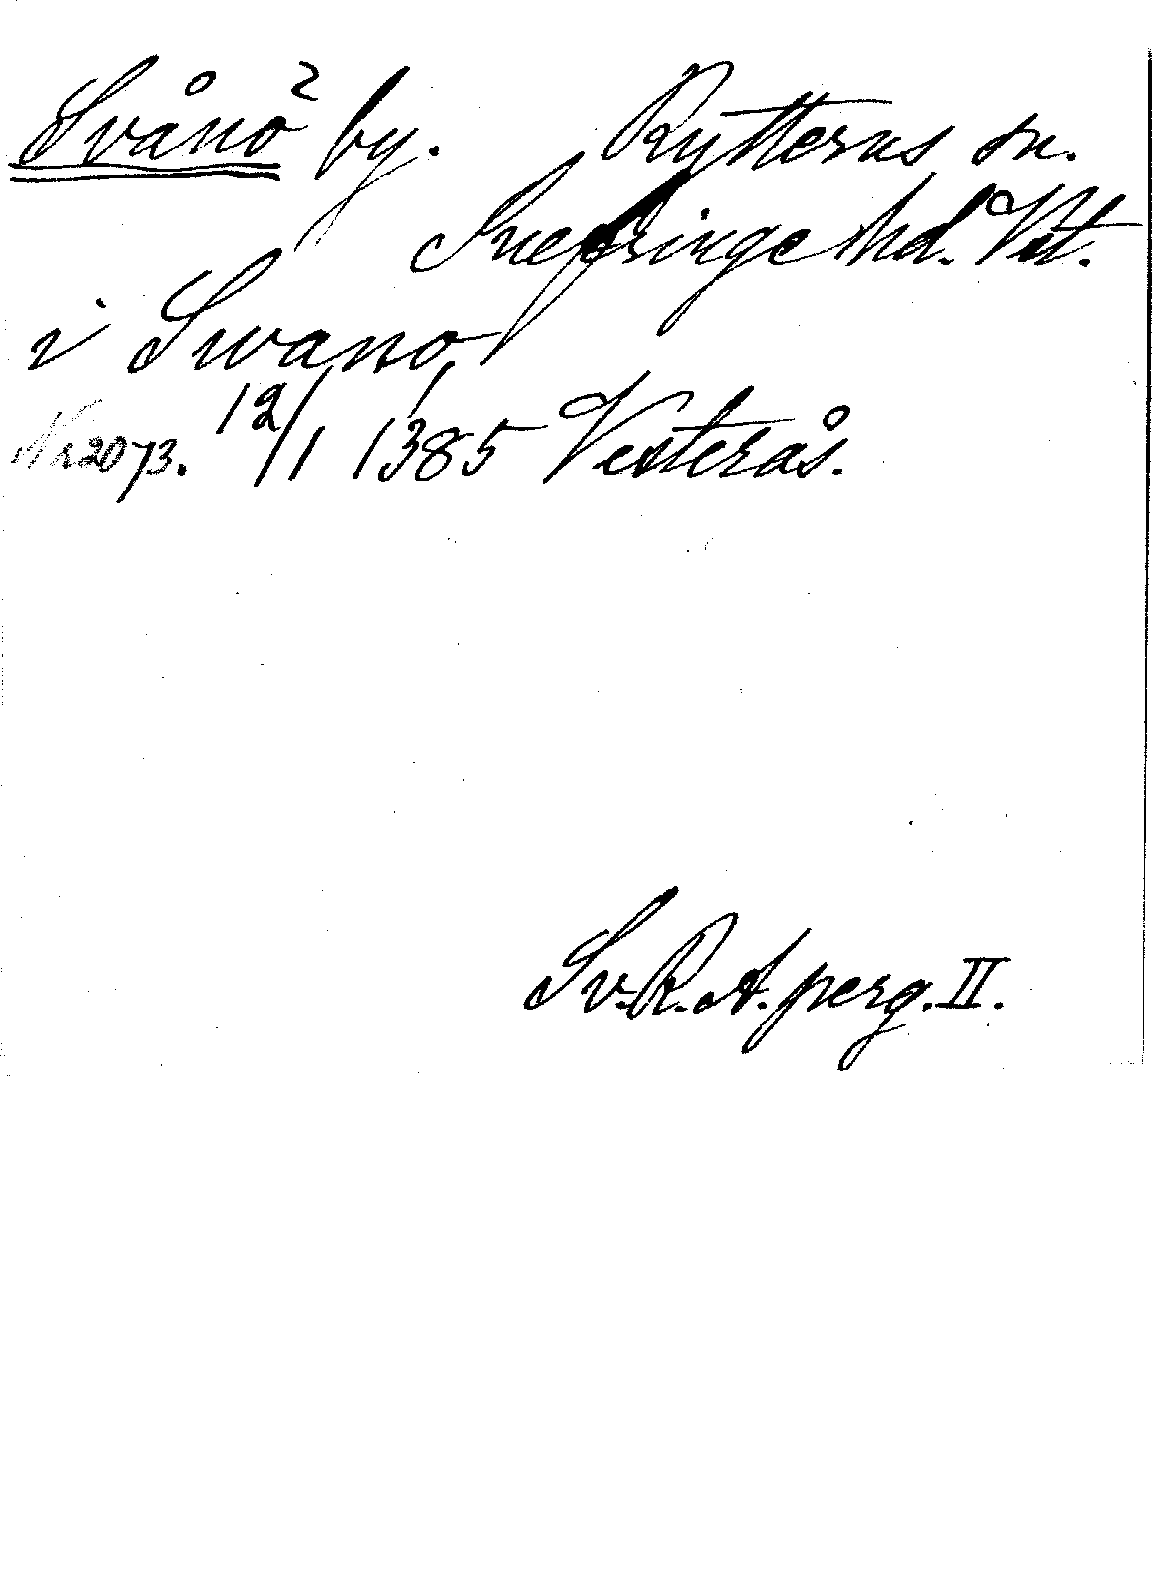 Svånö by. Rytterns sn.
Snefringe hd. Vst.
i Swano,
Nr 2073. 12/1 1385 Vesterås.
Sv. R. A. perg. II.